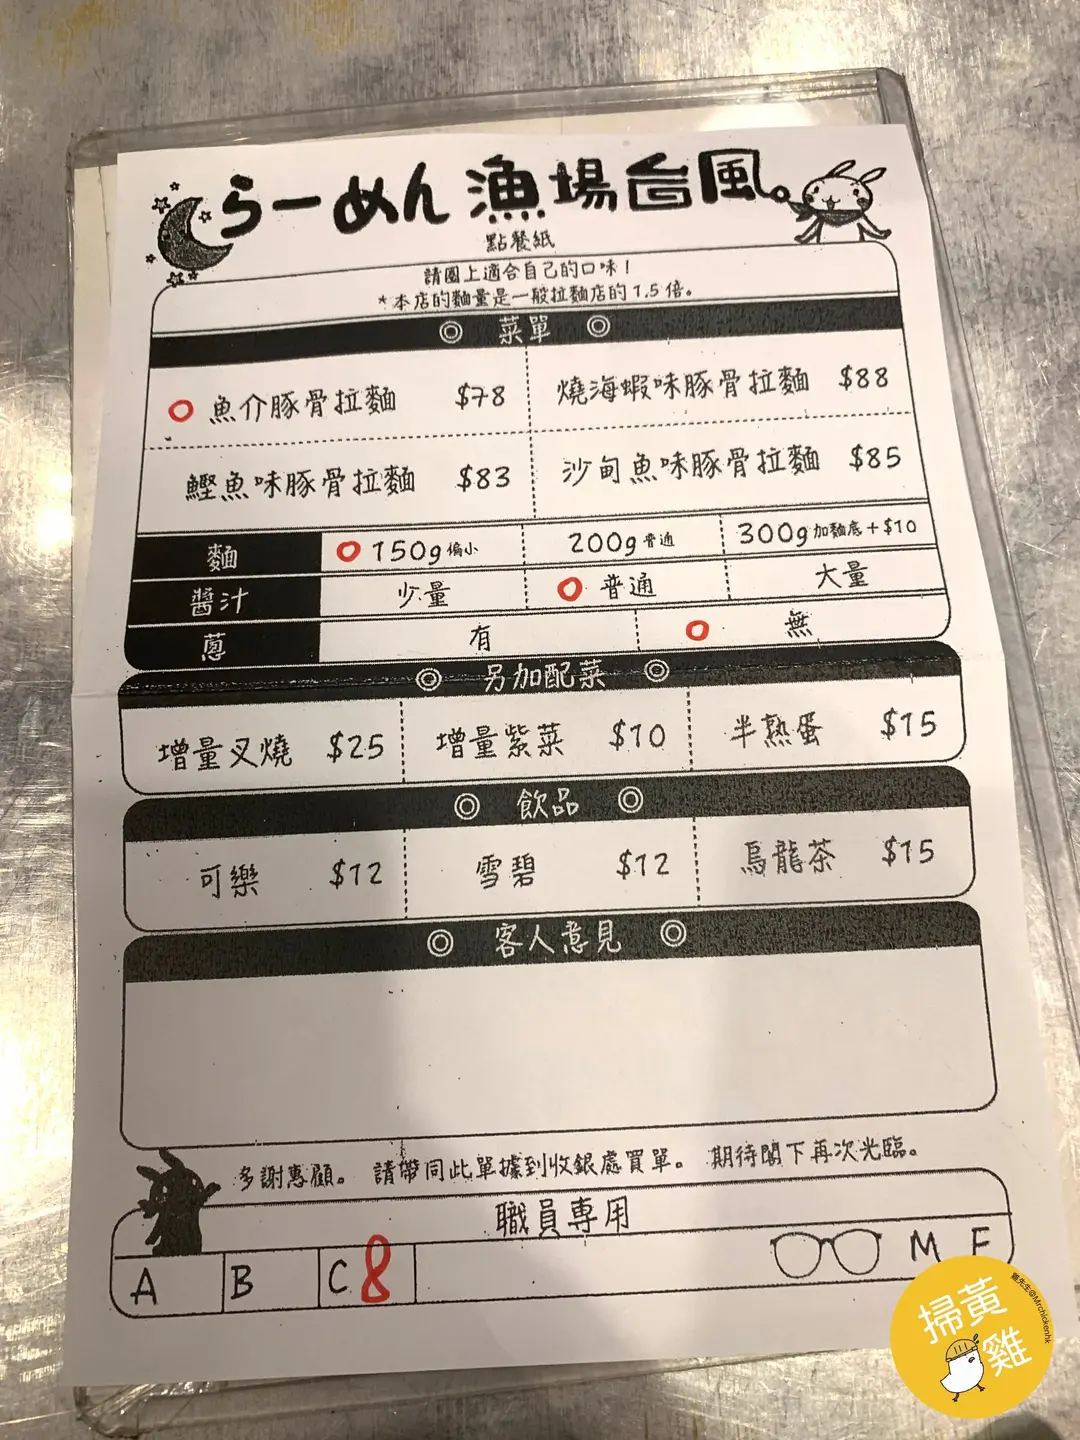 らーめん 漁場台風
點餐紙
請圈上適合自己的口味！
*本店的麵量是一般拉麵店的1.5倍。
◎ 菜單 ◎
魚介豚骨拉麵 $78 燒海蝦味豚骨拉麵 $88
鰹魚味豚骨拉麵 $83 沙甸魚味豚骨拉麵 $85
麵 150g偏小 200g普通 300g加麵底+$10
醬汁 少量 普通 大量
蔥 有 無
◎ 另加配菜 ◎
增量叉燒 $25 增量紫菜 $10 半熟蛋 $15
◎ 飲品 ◎
可樂 $12 雪碧 $12 烏龍茶 $15
◎ 客人意見 ◎
多謝惠顧。 請帶同此單據到收銀處買單。 期待閣下再次光臨。
職員專用
A B C 8 M F
掃黃雞
雞先生@Mrchickenhk